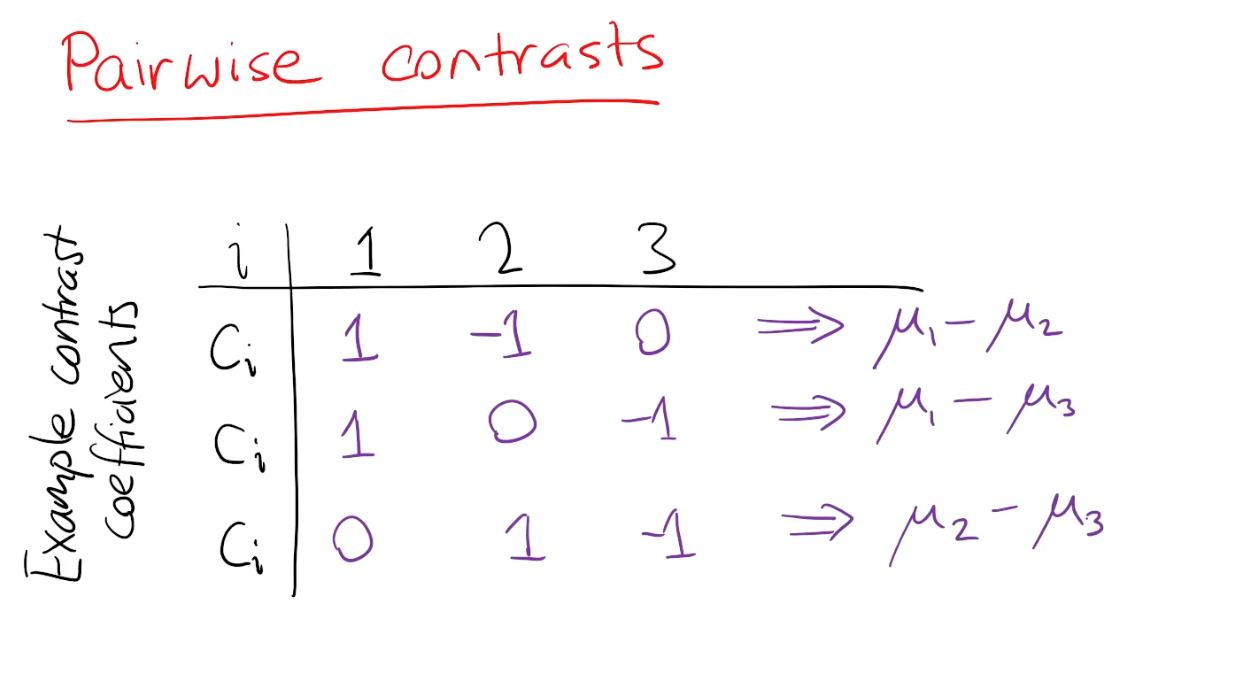 Pairwise contrasts
Example contrast
coefficients
i 1 2 3
Ci 1 -1 0 ⟹ μ1 - μ2
Ci 1 0 -1 ⟹ μ1 - μ3
Ci 0 1 -1 ⟹ μ2 - μ3